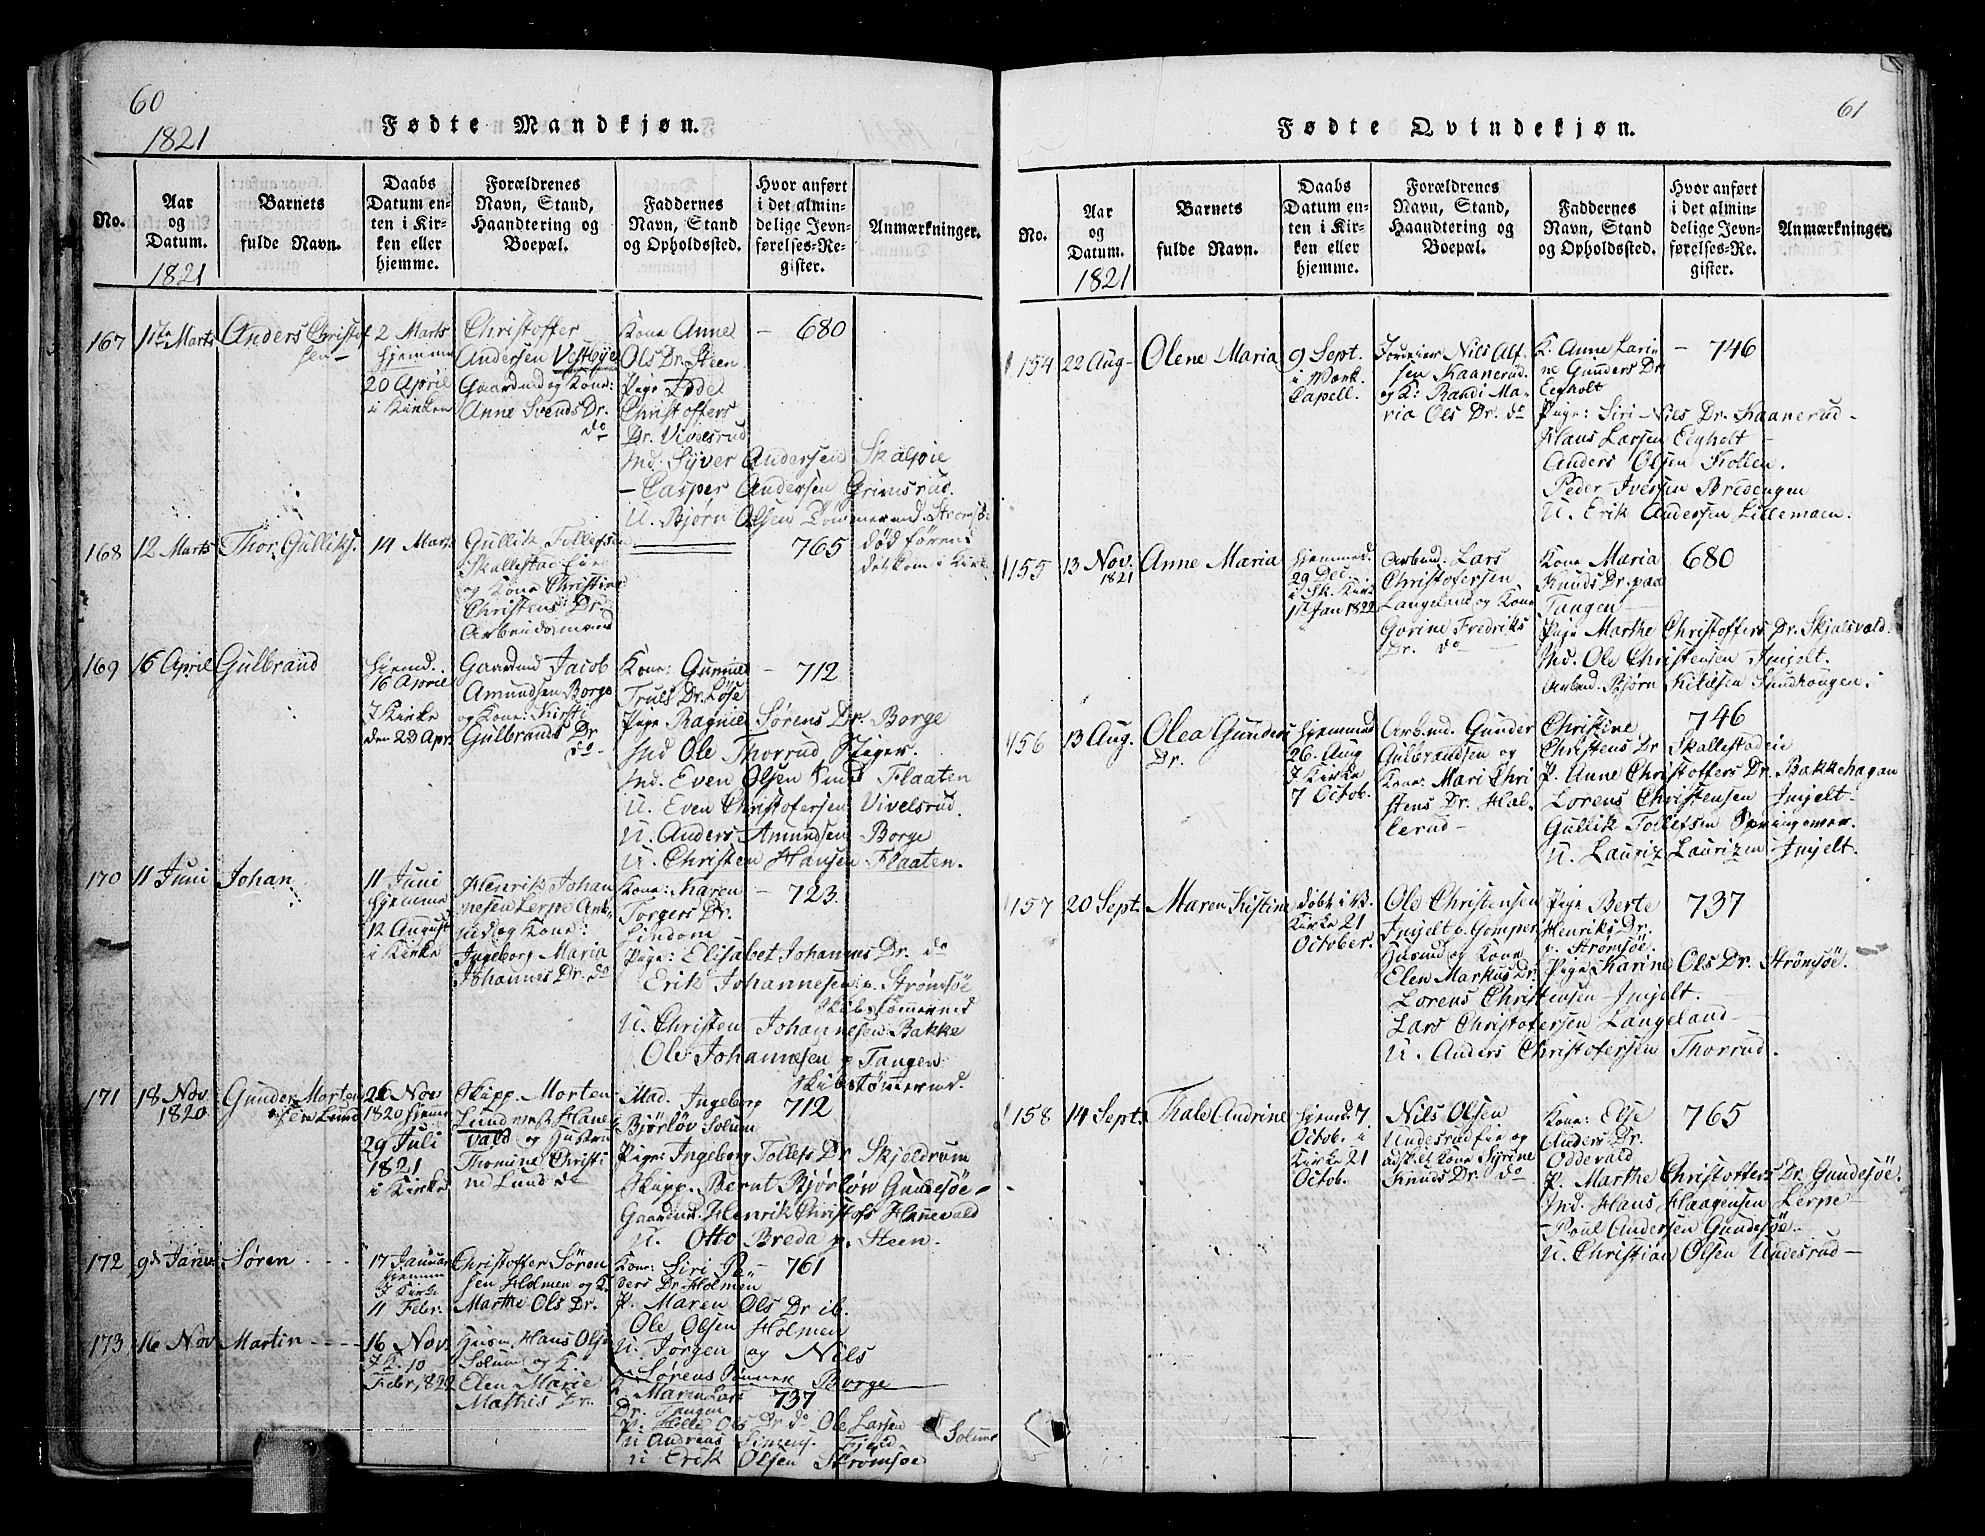 60
1821
Fødte Mandkjøn.
No.
Aar
og
Datum.
1821
Barnets
fulde Navn.
Daabs
Datum en-
ten i Kir-
ken eller
hjemme.
Forældrenes
Navn, Stand,
Haandtering og
Boepæl.
Faddernes
Navn, Stand
og Opholdssted.
Hvor anført
i det almin-
delige Jevn-
førelses-Re-
gister.
Anmærkninger.
167
11te Marts
Anders Christof
sen
2 Marts
hjemme
20 April
i Kirken
Christoffer
Andersen Vestbye
Gaardmd og Kone:
Anne Svends Dr.
do
Kone Anne
Ols Dr. Steen
Pige
Christoffers
Dr. Vivelsrud
Md. Syver Andersen Skalsoie
- Casper Andersen Grimsrud.
U. Bjørn Olsen
680
168
12 Marts
Thor Gulliks.
14 Mart.
Gullik Tollefsen
Skallestad Eie
og Kone Christine
Christens Dr.
Arbeidsmand
765
død føren
det kom i Kirk.
169
16 April
Gulbrand
hjemd.
16 April
I Kirke
den 23 Apr.
Gaardmd Jacob
Amundsen Borge
og Kone: Kirsti
Gulbrands Dr
do
Kone: Gunnild
Truls Dr. Løse
Pige Ragnild Sørens Dr. Borge
Md Ole Thorrud
Md. Even Olsen Flaaten
U. Even Christofersen Vivelsrud.
U. Anders Amundsen Borge
U. Christen Hansen Flaaten.
712
170
11 Juni
Johan
11 Juni
hjemme
12 August
i Kirke
Henrik Johan
nesen Lerpe Arb.
md og Kone:
Ingeborg Maria
Johannes Dr. do
Kone: Karen
Torgers Dr.
Lindom
Pige: Elisabet Johannes Dr. do
Erik Johannesen p. Strømsöe
Skibstømermd
U. Christen Johannesen Bakke
Ole Johannesen p Tangen
Skibstømermd.
723
171
18 Nov
1820
Gunder Morten
sen Lund
26 Nov
1820 hjemme
29 Juli
1821
i Kirke
Skipp. Morten
Lund Hane
vald og Hustru
Thomine Christi
ne Lund do
Mad. Ingeborg
Bjørløv Solum
Pige: Ingeborg Tollefs Dr Skjoldrum
Skipp. Bernt Bjørløw Gundesöe
Gaardmd. Henrik Christofs Hanevald
U. Otto Breda p. Steen
712
172
9de Janv.
Søren
17 Januar
hjemme
I Kirke
11 Febr.
Christoffer Søren
sen Holmen og K.
Marthe Ols Dr.
Kone: Siri Pe
ders Dr Holmen
P. Maren Ols Dr ib.
Ole Olsen Holmen
U. Jørgen og Nils
Sørens Borge
761
173
16 Nov
Martin
16 Nov.
I K. 10
Febr. 1822
Husm. Hans Olsen
Solum og K.
Elen Marie
Mathis Dr.
K. Maren Lars
Dr. Tangen
P. Helle Ols Dr do Ole Larsen
U Andreas Simens. Field
U Erik Olsen Strømsöe
737
Solum
61
Fødte Qvindekjøn.
No.
Aar
og
Datum.
1821
Barnets
fulde Navn.
Daabs
Datum en-
ten i Kir-
ken eller
hjemme.
Forældrenes
Navn, Stand,
Haandtering og
Boepæl.
Faddernes
Navn, Stand
og Opholdssted.
Hvor anført
i det almin-
delige Jevn-
førelses-Re-
gister.
Anmærkninger.
154
22 Aug
Olene Maria
9 Sept.
i Værk
Capell.
Nils Alf
sen Kaanerud
og K: Randi Ma-
ria Ols Dr. do
K. Anne Lari
ne Gunders Dr
Eegholt
Pige: Siri Nils Dr. Kaanerud
Hans Larsen Eegholt
Anders Olsen Kollen.
Peder Iversen Bresengen
U. Erik Andersen Lillemoen.
746
155
13 Nov.
1821
Anne Maria
hjemmed.
29 Dec.
i Sk. Kirk
1st Jan 1822
Arbmd: Lars
Christofersen
Langeland og Kone
Gorine Fredriks
Dr. do
Kone Maria
Knuds Dr. paa
Tangen
Pige Marthe Christoffers Dr. Skjalsvald.
Md. Ole Christensen Jnjelt.
Arbmd. Bjørn Kittilsen Sundhougen.
680
156
13 Aug.
Olea Gunders
Dr.
hjemmed
26. Aug
I Kirke
7 Octob.
Arbmd. Gunder
Gulbrandsen og
Kone: Mari Chri
stens Dr. Hal-
lerud
Christine
Christens Dr Skallestadeie
P. Anne Christoffers Dr. Bakkehagan
Lorens Christensen Jnjelt
Gullik Tollefsen Springemoen.
U. Lauriz Laurizen Jnjelt.
746
157
20 Sept.
Maren Kistine
Døbt i B.
Kirke 21
October.
Ole Christensen
Jnjelt
Husmd og Kone
Elen Markus Dr.
Pige Berte
Henriks Dr.
p. Strømsöe.
Pige Karine Ols Dr. Strømsöe.
Lorens Christensen Jnjelt.
Lars Christofersen Langeland
U. Anders Christofersen Thorrud.
737
158
14 Sept.
Thale Andrine
hjemd. 7
Octob. i
Kirke 21
Octob.
Nils Olsen
Undesrud Eie og
adskilt Kone Syrine
Knuds Dr. do
Kone: Else
Anders Dr.
Oddevald
P. Marthe Christoffers Dr. Gundesöe.
Md. Hans Haagensen Lerpe
- Poul Andersen Gundesöe.
U. Christian Olsen Undesrud
765